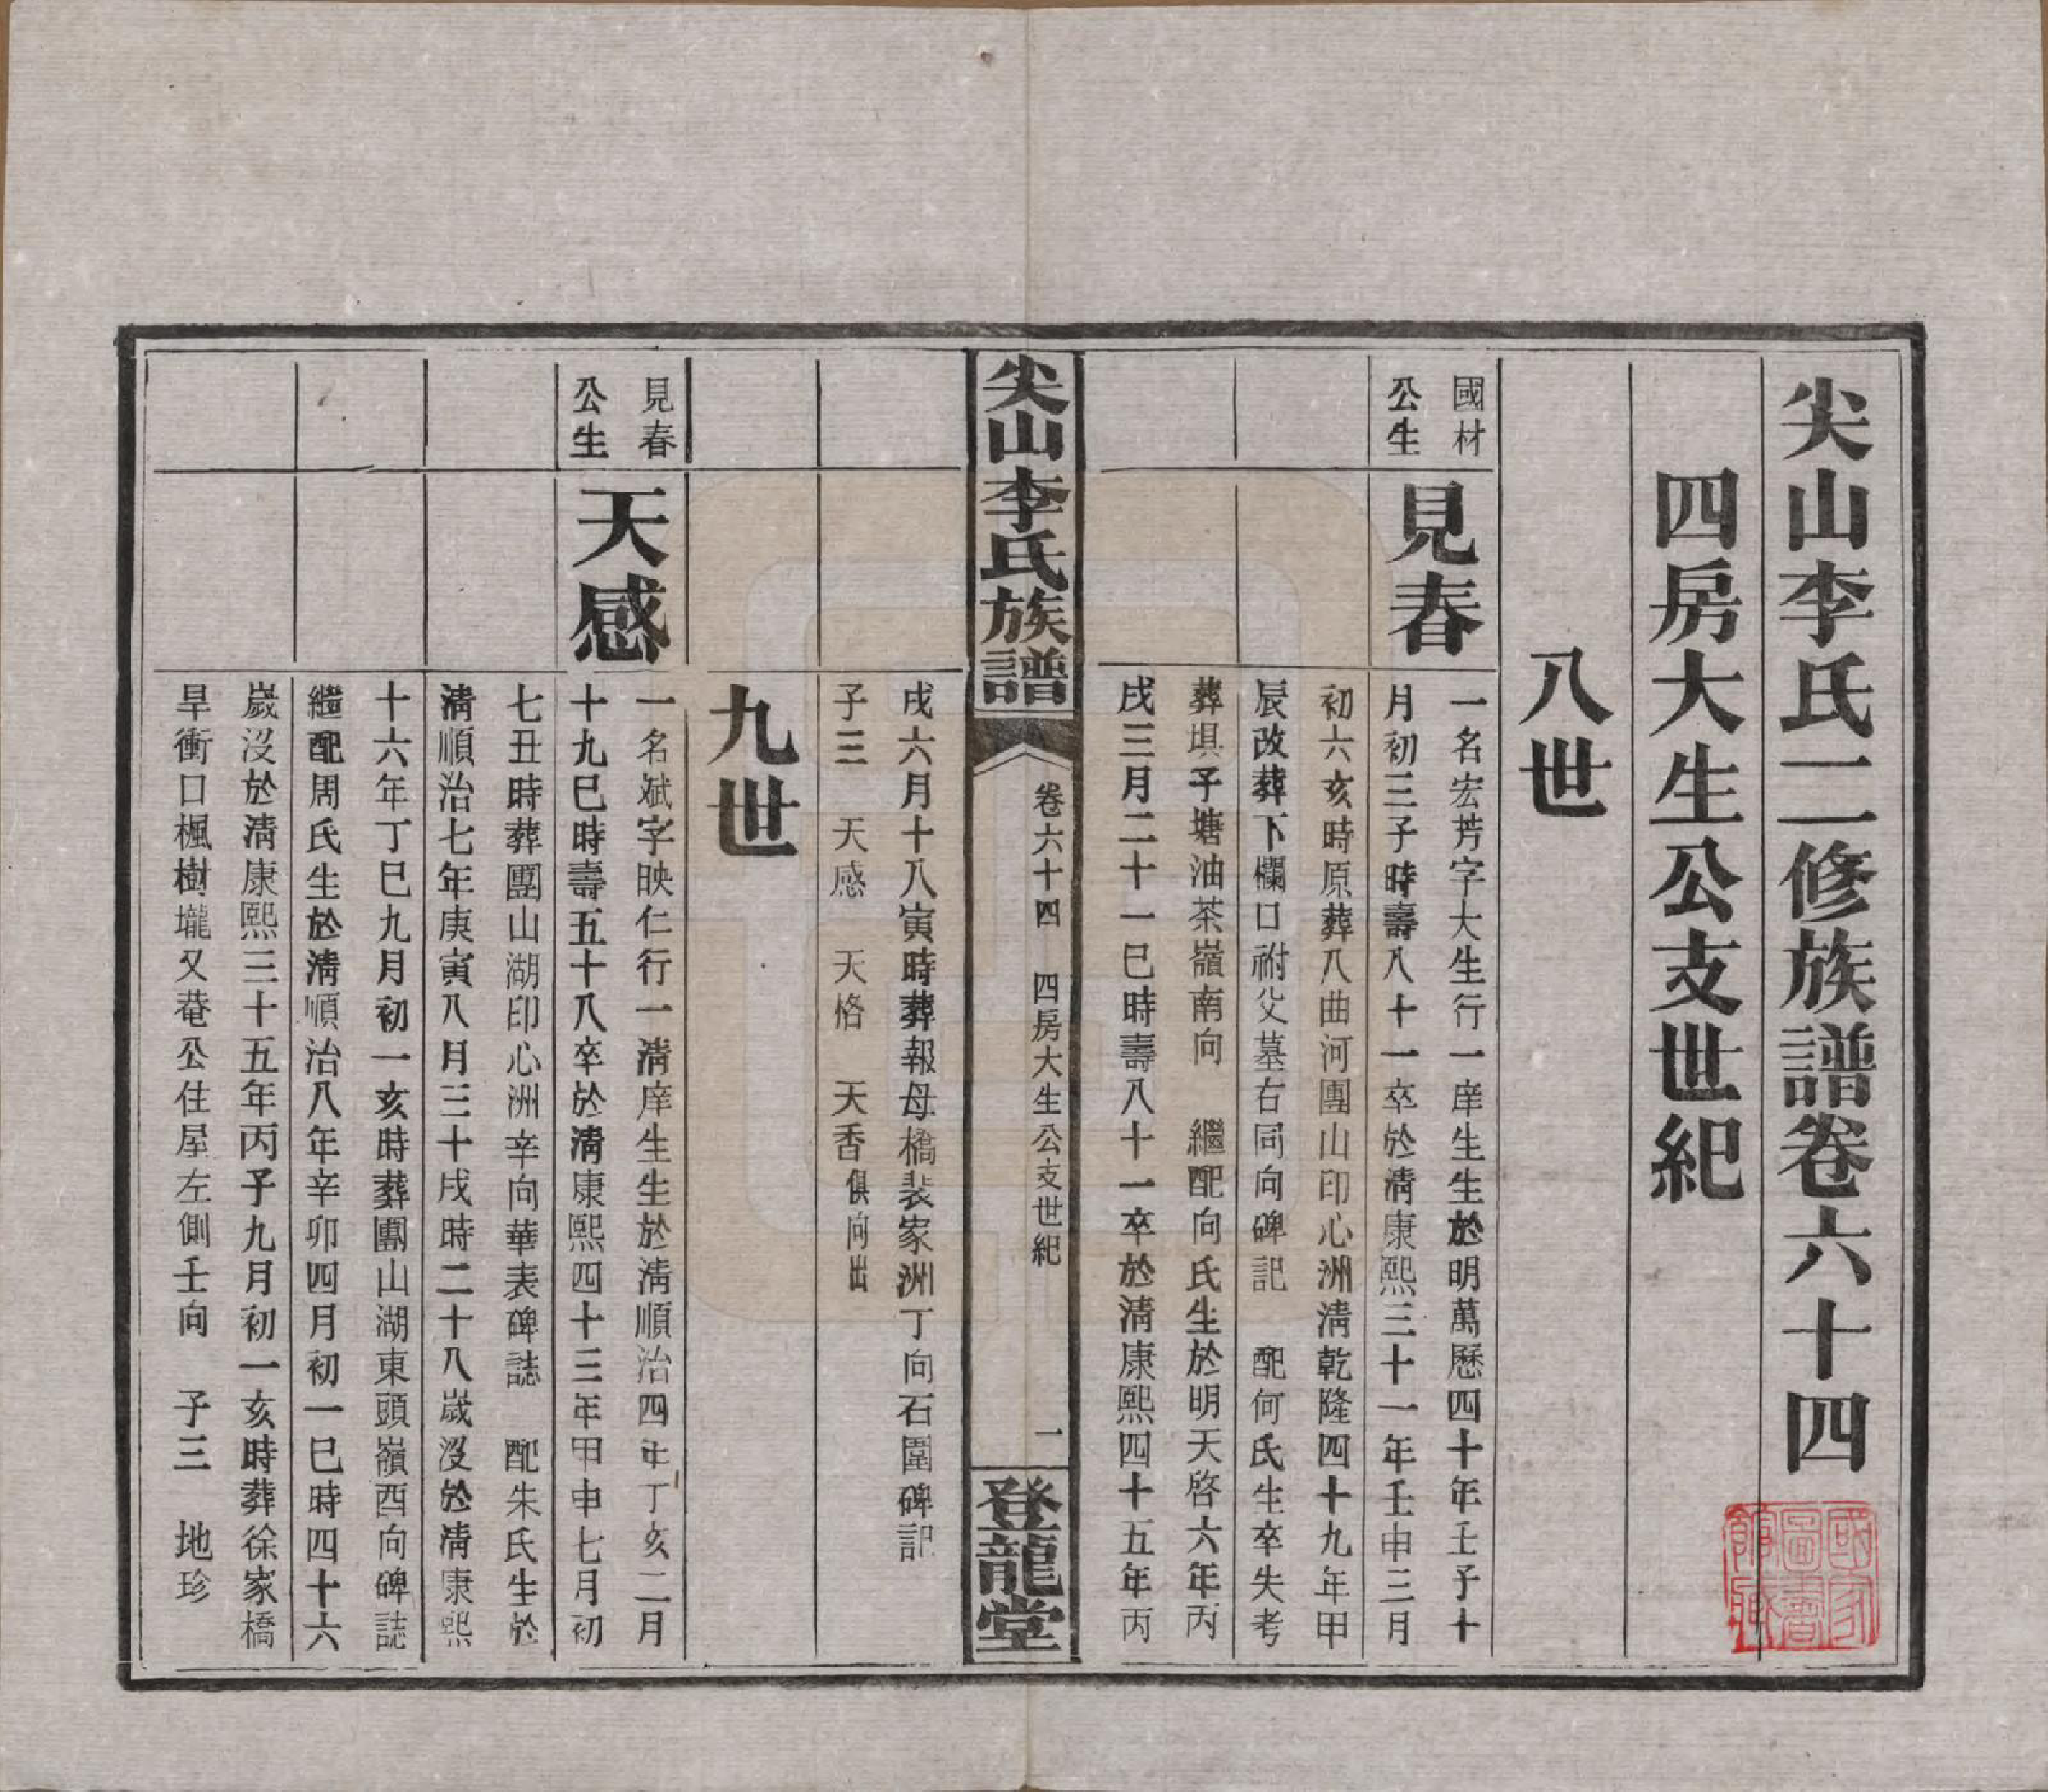 尖山李氏二修族譜卷六十四
四房大生公支世紀
八世
國材
公生
見春
一名宏芳字大生行一庠生生於明萬歷四十年壬子十
月初三子時壽八十一卒於清康熙三十一年壬申三月
初六亥時原葬八曲河團山印心洲清乾隆四十九年甲
辰改葬下欄口祔父墓右同向碑記　配何氏生卒失考
葬埧子塘油茶嶺南向　繼配向氏生於明天啓六年丙
戌三月二十一巳時壽八十一卒於清康熙四十五年丙
尖山李氏族譜
卷六十四　四房大生公支世紀
一
登龍堂
戌六月十八寅時葬報母橋裴家洲丁向石圍碑記
子三　天感　天格　天香俱向出
九世
見春
公生
天感
一名斌字映仁行一清庠生生於清順治四年丁亥二月
十九巳時壽五十八卒於清康熙四十三年甲申七月初
七丑時葬團山湖印心洲辛向華表碑誌　配朱氏生於
清順治七年庚寅八月三十戌時二十八歲沒於清康熙
十六年丁巳九月初一亥時葬團山湖東頭嶺西向碑誌
繼配周氏生於清順治八年辛卯四月初一巳時四十六
歲沒於清康熙三十五年丙子九月初一亥時葬徐家橋
旱衝口楓樹壠又菴公住屋左側壬向　子三　地珍
國家圖書館藏